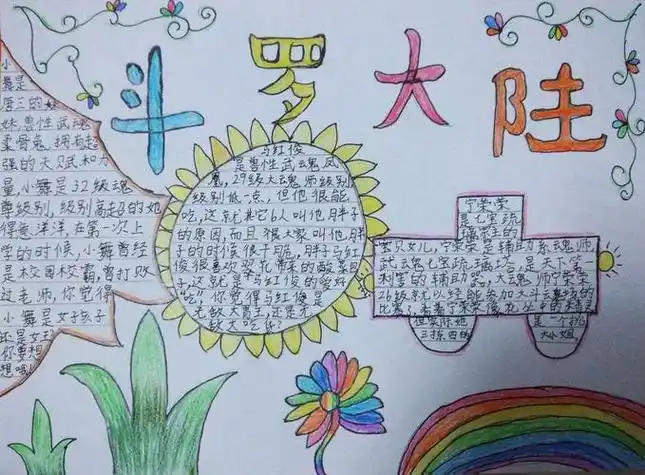 斗罗大陆
小
舞是
唐三的妹
妹兽性武魂
柔骨兔,拥有超
强的天赋和力
量,小舞是32级魂
尊级别,级别高超的她
得意洋洋,在第一次上
学的时候,小舞曾经
是校园校霸,曾打败
过老师,你觉得
小舞是女孩子
还是女
你要想
想哦
马红俊
是兽性武魂凤
凰,29级大魂师级别
级别低一点,但他很能
吃,这就其它6人叫他胖子
的原因,而且很大家叫他胖
子的时候很干脆,胖子马红
俊很喜欢
子,这就是马红俊的爱好
吃"你觉得马红俊是
无敌大胃王,还是无
敌大吃货!
宁荣荣
是七宝琉
璃宗主的
宝贝女儿,宁荣荣是辅助系魂师,
武魂七宝琉璃塔,是天下第
利害的辅助
26级就以经能参加大斗魂场的
比赛
三拣四的
是一个挑